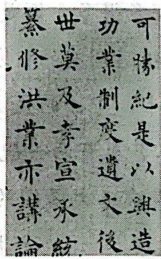 可勝紀是以興造
功業制度遺文後
世莫及孝宣承統
纂修洪業亦講論